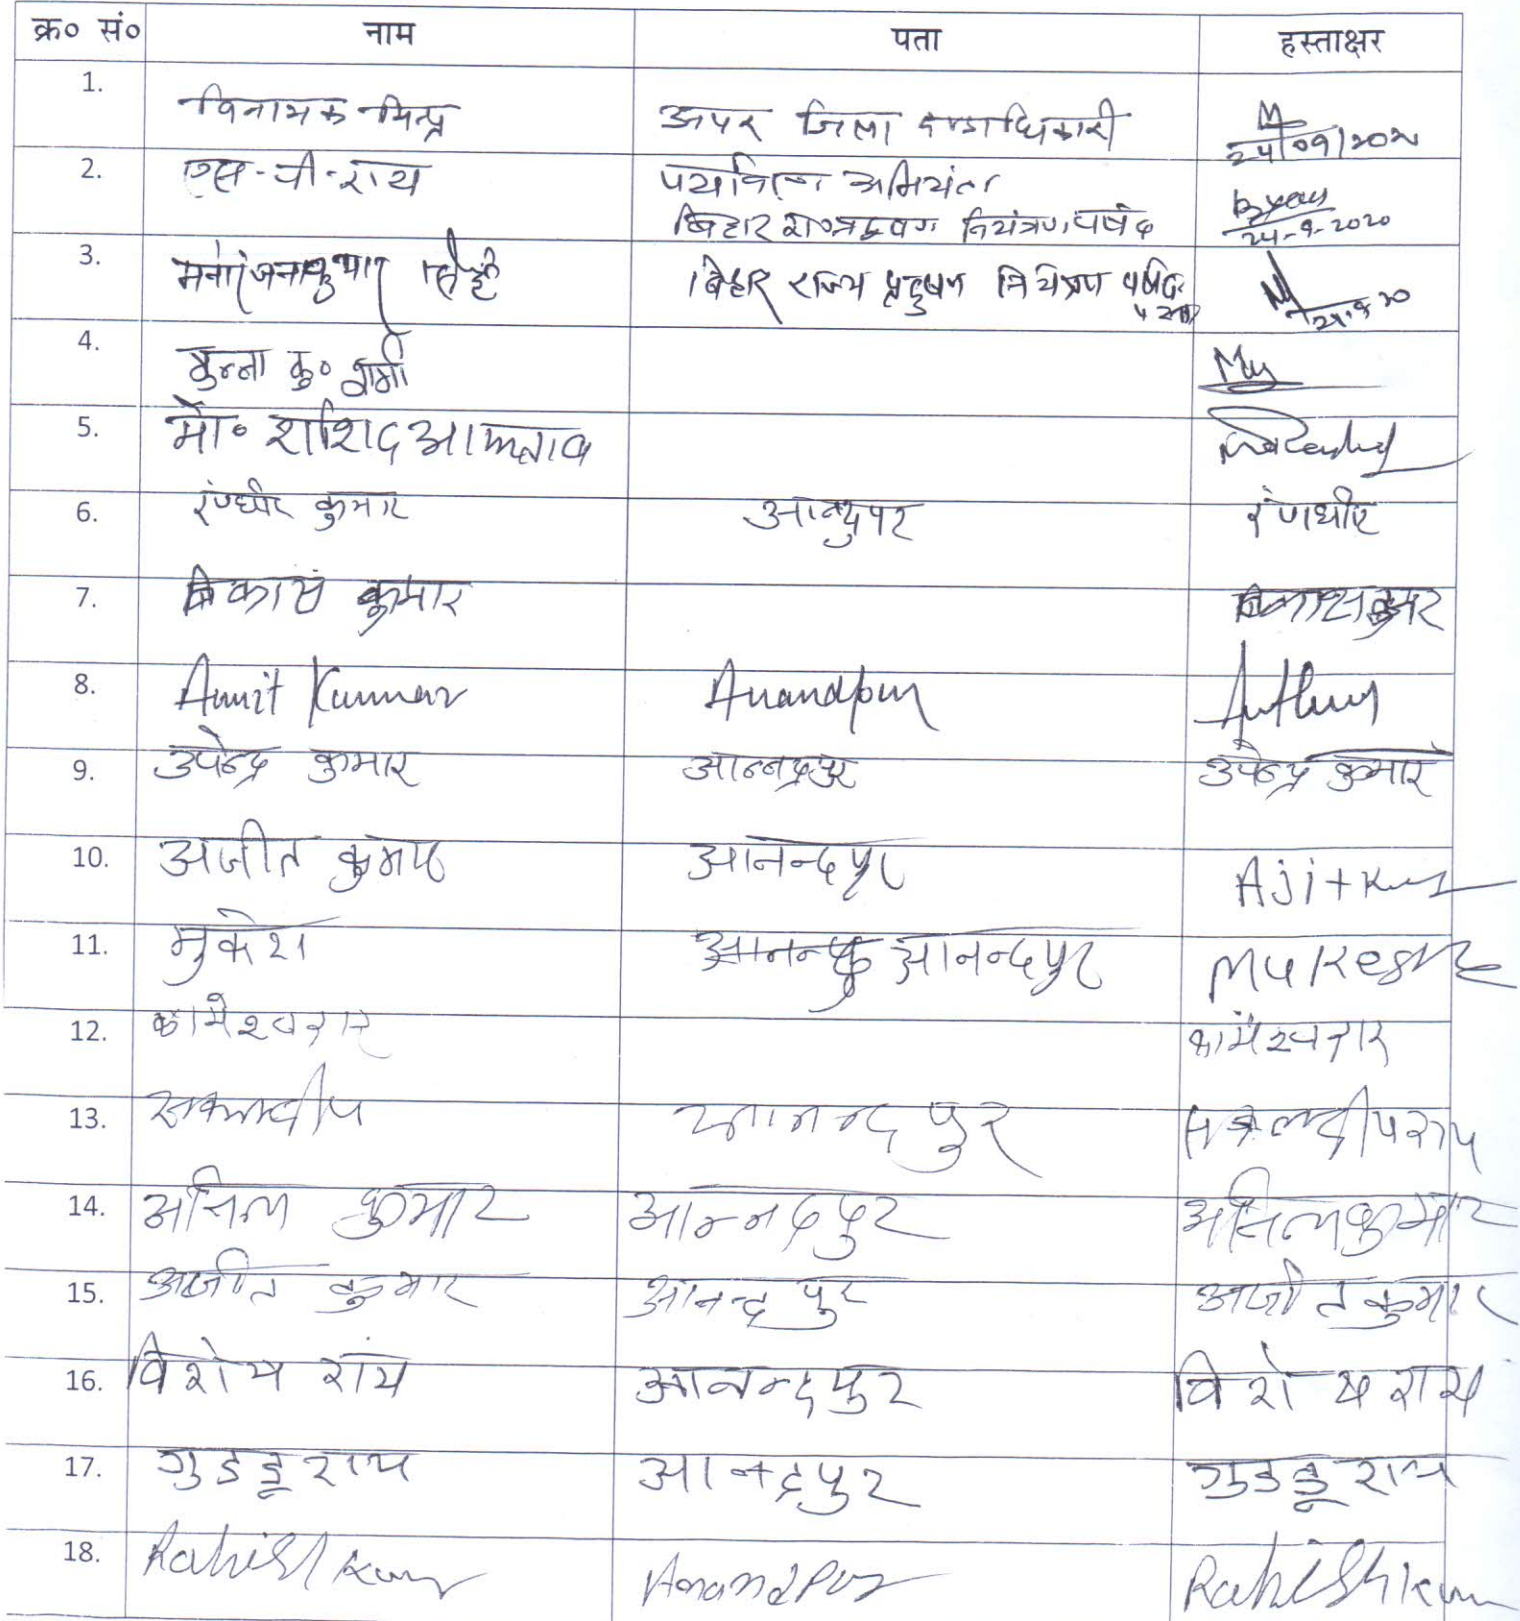 क्र० सं० नाम पता हस्ताक्षर
1. विनायक मिश्र अपर जिला दण्डाधिकारी 24/09/2020
2. एस-पी-राय पर्यावरण अभियंता
बिहार रा० प्रदूषण नियंत्रण पर्षद 24-9-2020
3. मनोरंजन कुमार सिंह बिहार राज्य प्रदूषण नियंत्रण पर्षद
4. मुन्ना कु० शर्मा
5. मो० राशिद आफताब
6. रंणधीर कुमार रंणधीर
7. विकास कुमार
8. Amit Kumar Anandpur
9. उपेन्द्र कुमार आन्नद्रपुर उपेन्द्र कुमार
10. अजीत कुमार आनन्दपुर Ajit
11. मुकेश आनन्दपुर Mukesh
12.
13. सकलदीप आनन्दपुर सकलदीपराय
14. अनिल कुमार आन्नदपुर अनिल कुमार
15. अजीत कुमार आनन्द पुर अजीत कुमार
16. विशेष राय आनन्दपुर
17. गुडडू राय आनन्द्रपुर गुडडू राय
18. Anandpur